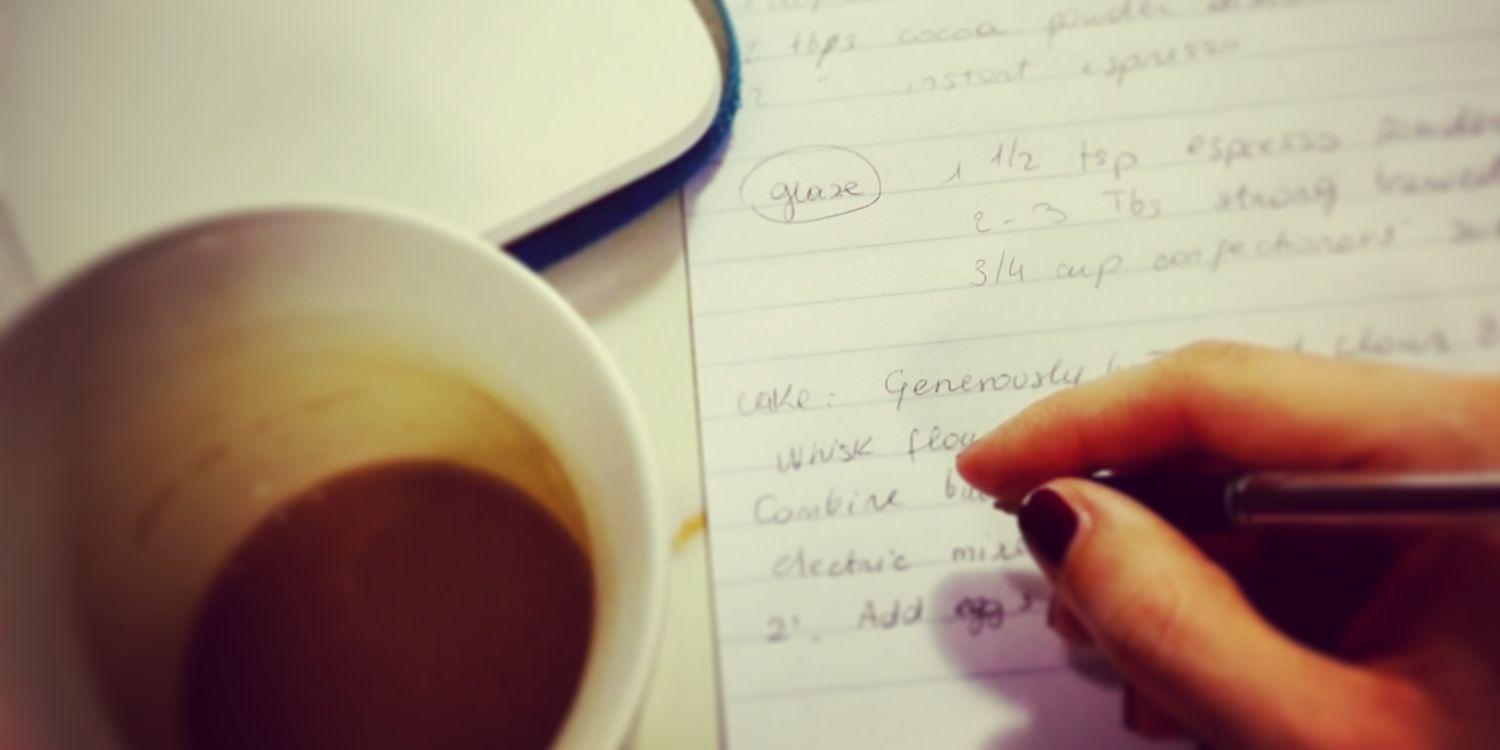 2 tbps cocoa powder
2 " instant espresso
glaze 1 1/2 tsp espresso powder
2-3 Tbs strong brewed
3/4 cup confectioners'
cake: Generously
Whisk
Combine
electric
2'. Add eggs